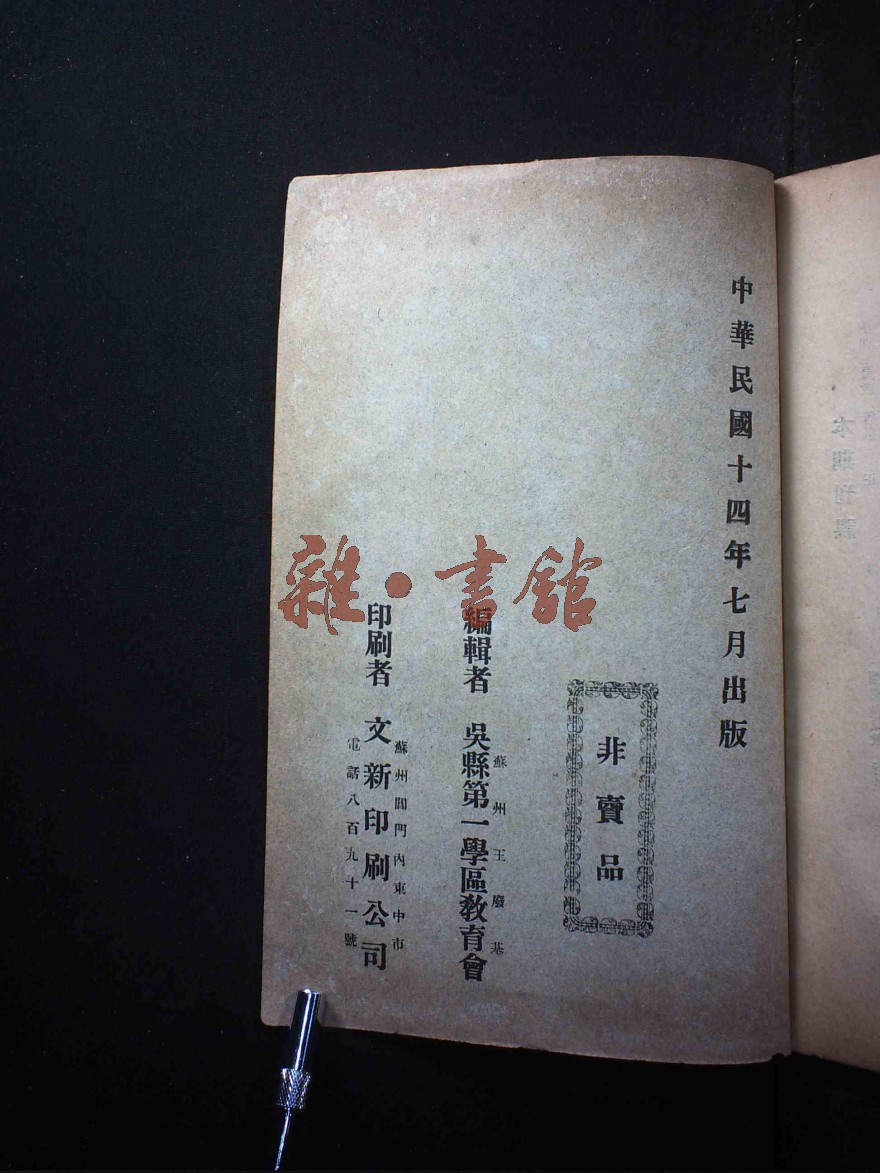 中華民國十四年七月出版
非賣品
蘇州王廢基
編輯者 吳縣第一學區教育會
蘇州閶門內東中市
印刷者 文新印刷公司
電話八百九十一號
雜·書館
本期刊誤